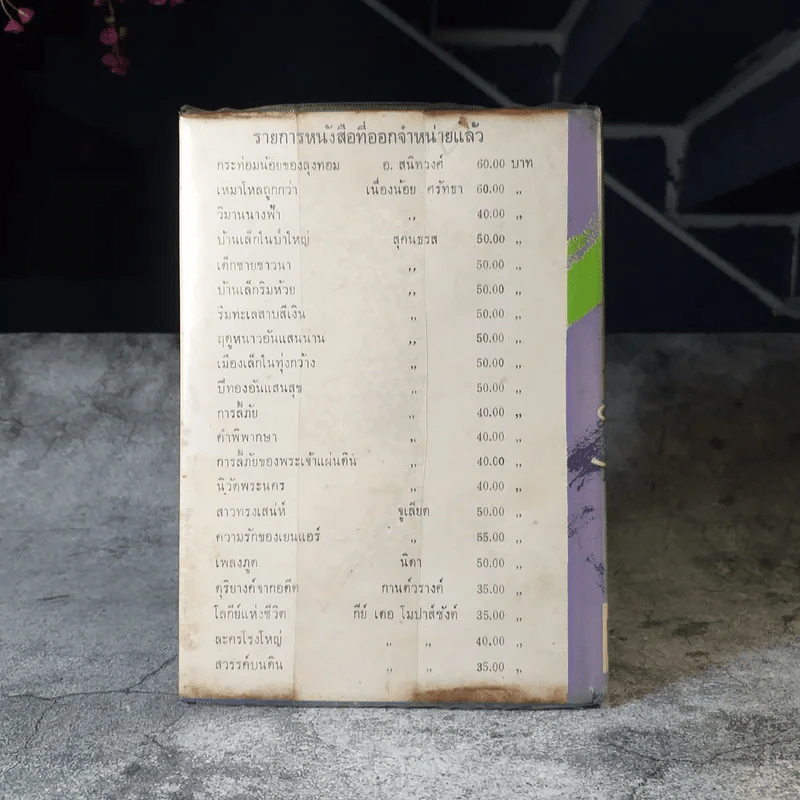 รายการหนังสือที่ออกจำหน่ายแล้ว
กระท่อมน้อยของลุงทอม อ. สนิทวงศ์ 60.00 บาท
เหมาโหลถูกกว่า เนื่องน้อย ศรัทธา 60.00 ,,
วิมานนางฟ้า ,, 40.00 ,,
บ้านเล็กในป่าใหญ่ สุคนธรส 50.00 ,,
เด็กชายชาวนา ,, 50.00 ,,
บ้านเล็กริมห้วย ,, 50.00 ,,
ริมทะเลสาบสีเงิน ,, 50.00 ,,
ฤดูหนาวอันแสนนาน ,, 50.00 ,,
เมืองเล็กในทุ่งกว้าง ,, 50.00 ,,
ปีทองอันแสนสุข ,, 50.00 ,,
การลี้ภัย ,, 40.00 ,,
คำพิพากษา ,, 40.00 ,,
การลี้ภัยของพระเจ้าแผ่นดิน ,, 40.00 ,,
นิวัตพระนคร ,, 40.00 ,,
สาวทรงเสน่ห์ จูเลียต 50.00 ,,
ความรักของเยนแอร์ ,, 55.00 ,,
เพลงภูต นิดา 50.00 ,,
ดุริยางค์จากอดีต กานต์วรางค์ 35.00 ,,
โลกีย์แห่งชีวิต กีย์ เดอ โมปาส์ซังต์ 35.00 ,,
ละครโรงใหญ่ ,, ,, 40.00 ,,
สวรรค์บนดิน ,, ,, 35.00 ,,